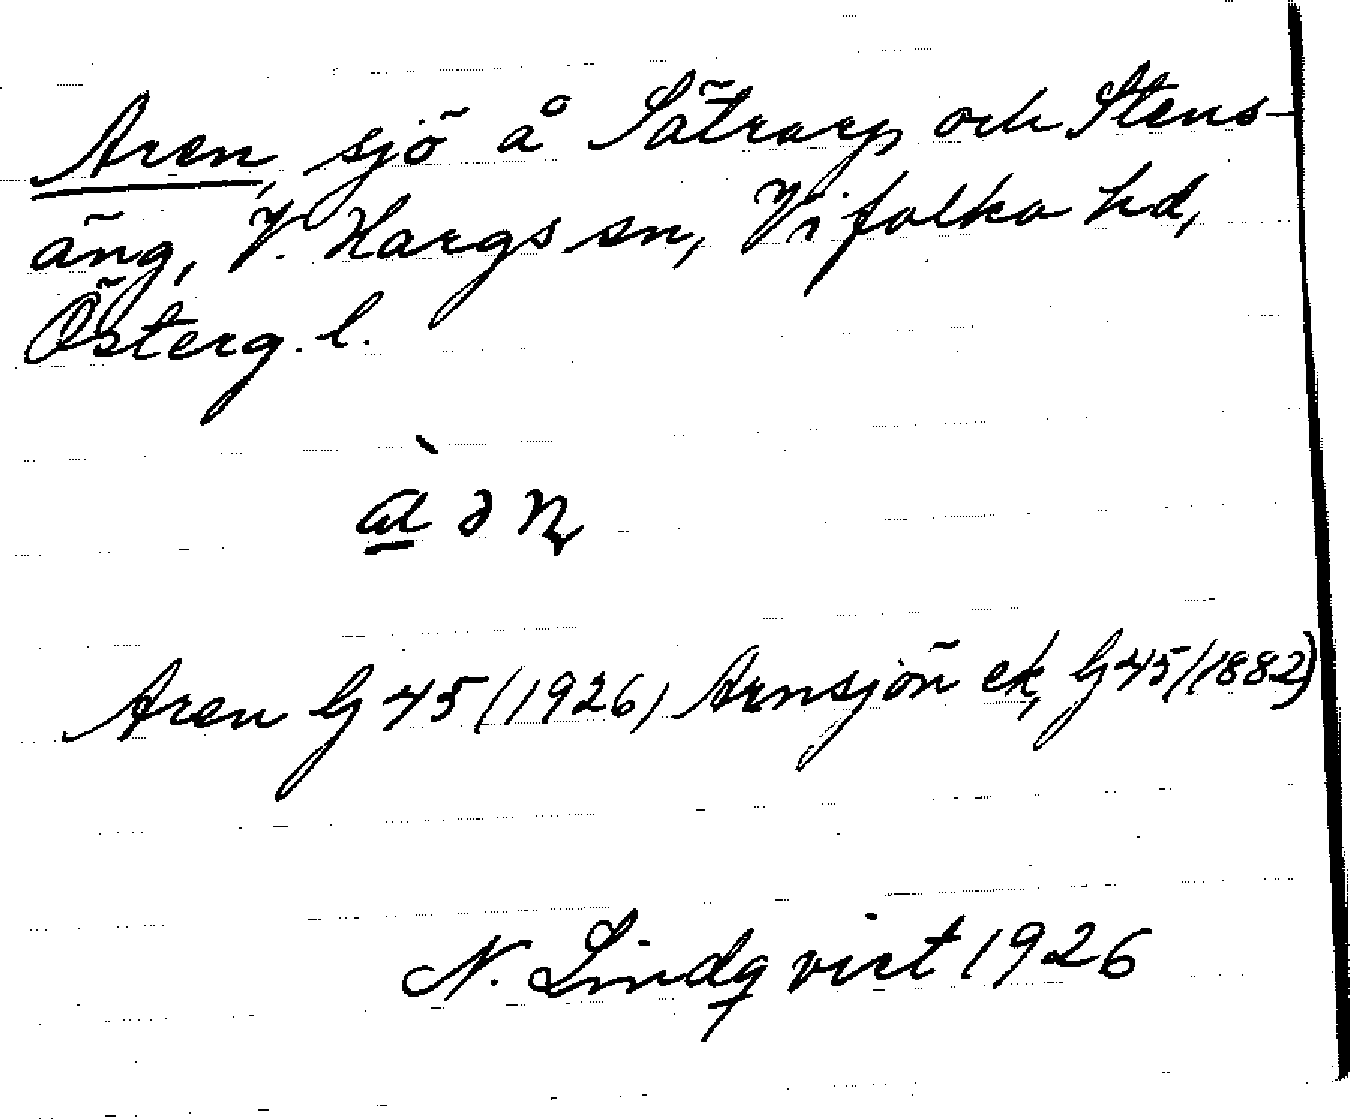 Aren, sjö å Sätrarp och Stens-
äng, V. Hargs sn, Vifolka hd,
Österg. l.
Aren G 45 (1926) Arnsjön ek, G 45 (1882)
N. Lindqvist 1926